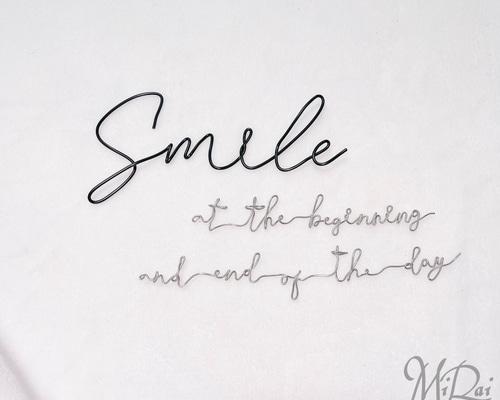 Smile
at the beginning
and end of the day
MiRai